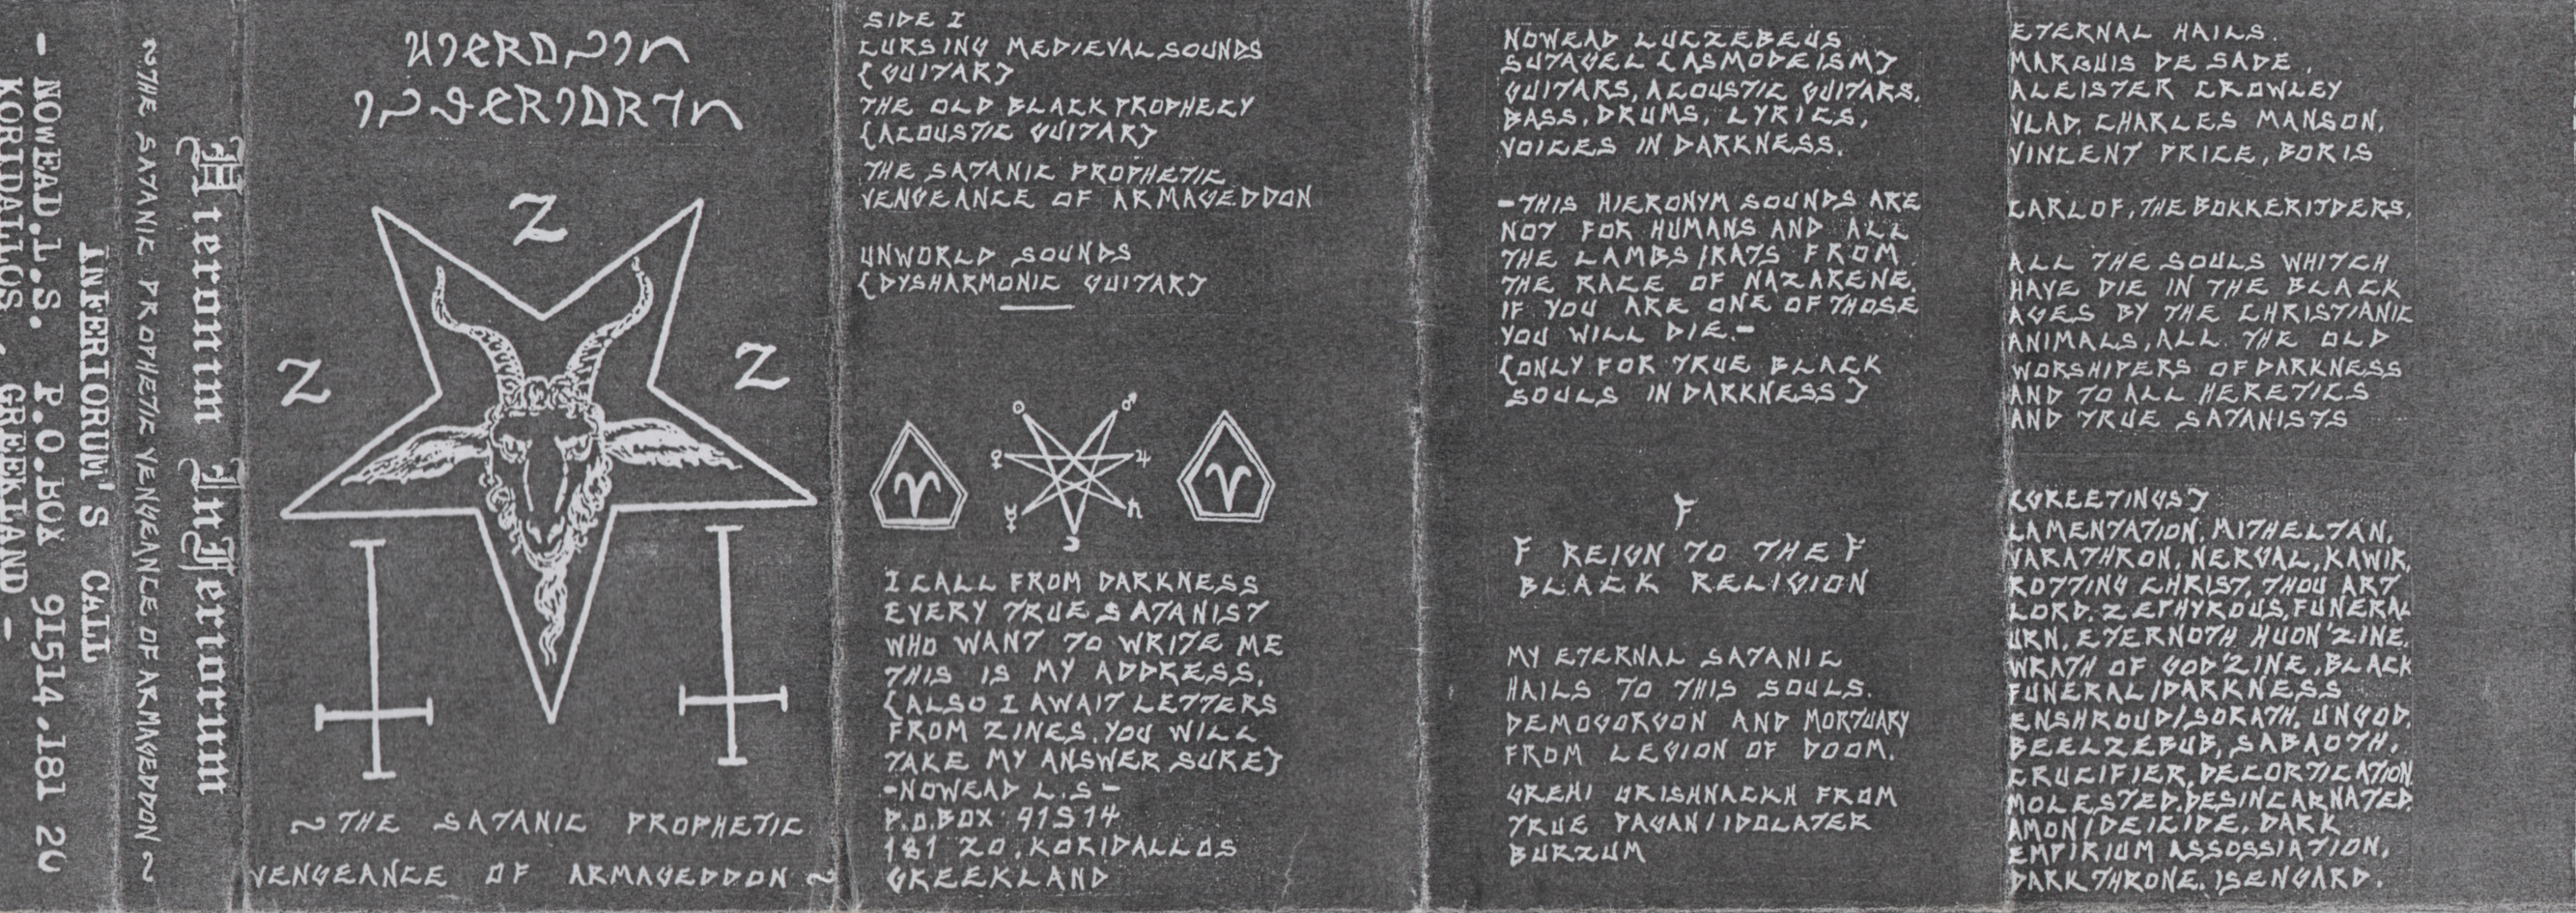 INFERIORUM'S CALL
- NOWEAD.L.S. P.O.BOX 91514.181 20
KORIDALLOS, GREEKLAND -
~THE SATANIC PROPHETIC VENGEANCE OF ARMAGEDDON~
Hieronim Inferiorum
Z
Z
Z
~THE SATANIC PROPHETIC
VENGEANCE OF ARMAGEDDON~
SIDE I
CURSING MEDIEVAL SOUNDS
{GUITAR}
THE OLD BLACK PROPHECY
{ACOUSTIC GUITAR}
THE SATANIC PROPHETIC
VENGEANCE OF ARMAGEDDON
UNWORLD SOUNDS
{DYSHARMONIC GUITAR}
I CALL FROM DARKNESS
EVERY TRUE SATANIST
WHO WANT TO WRITE ME
THIS IS MY ADDRESS.
{ALSO I AWAIT LETTERS
FROM ZINES. YOU WILL
TAKE MY ANSWER SURE}
-NOWEAD L.S-
P.O.BOX 91514
181 20, KORIDALLOS
GREEKLAND
NOWEAD LUCZEBEUS
SUTAGEL {ASMODEISM}
GUITARS, ACOUSTIC GUITARS,
BASS, DRUMS, LYRICS,
VOICES IN DARKNESS.
-THIS HIERONYM SOUNDS ARE
NOT FOR HUMANS AND ALL
THE LAMBS/RATS FROM
THE RACE OF NAZARENE.
IF YOU ARE ONE OF THOSE
YOU WILL DIE.-
{ONLY FOR TRUE BLACK
SOULS IN DARKNESS}
F
F REIGN TO THE F
BLACK RELIGION
MY ETERNAL SATANIC
HAILS TO THIS SOULS.
DEMOGORGON AND MORTUARY
FROM LEGION OF DOOM.
GREHI GRISHNACKH FROM
TRUE PAGAN/IDOLATER
BURZUM
ETERNAL HAILS.
MARGUIS DE SADE,
ALEISTER CROWLEY
VLAD, CHARLES MANSON,
VINCENT PRICE, BORIS
CARLOF, THE BOKKERIJDERS,
ALL THE SOULS WHITCH
HAVE DIE IN THE BLACK
AGES BY THE CHRISTIANIC
ANIMALS, ALL THE OLD
WORSHIPERS OF DARKNESS
AND TO ALL HERETICS
AND TRUE SATANISTS
{GREETINGS}
LAMENTATION, MITHELTAN,
VARATHRON, NERGAL, KAWIR,
ROTTING CHRIST, THOU ART
LORD, ZEPHYROUS, FUNERAL
URN, ETERNOTH, HUON'ZINE,
WRATH OF GOD'ZINE, BLACK
FUNERAL/DARKNESS
ENSHROUD/SORATH, UNGOD,
BEELZEBUB, SABAOTH,
CRUCIFIER, DECORTICATION,
MOLESTED, DESINCARNATED,
AMON/DEICIDE, DARK
EMPIRIUM ASSOSSIATION,
DARKTHRONE, ISENGARD.